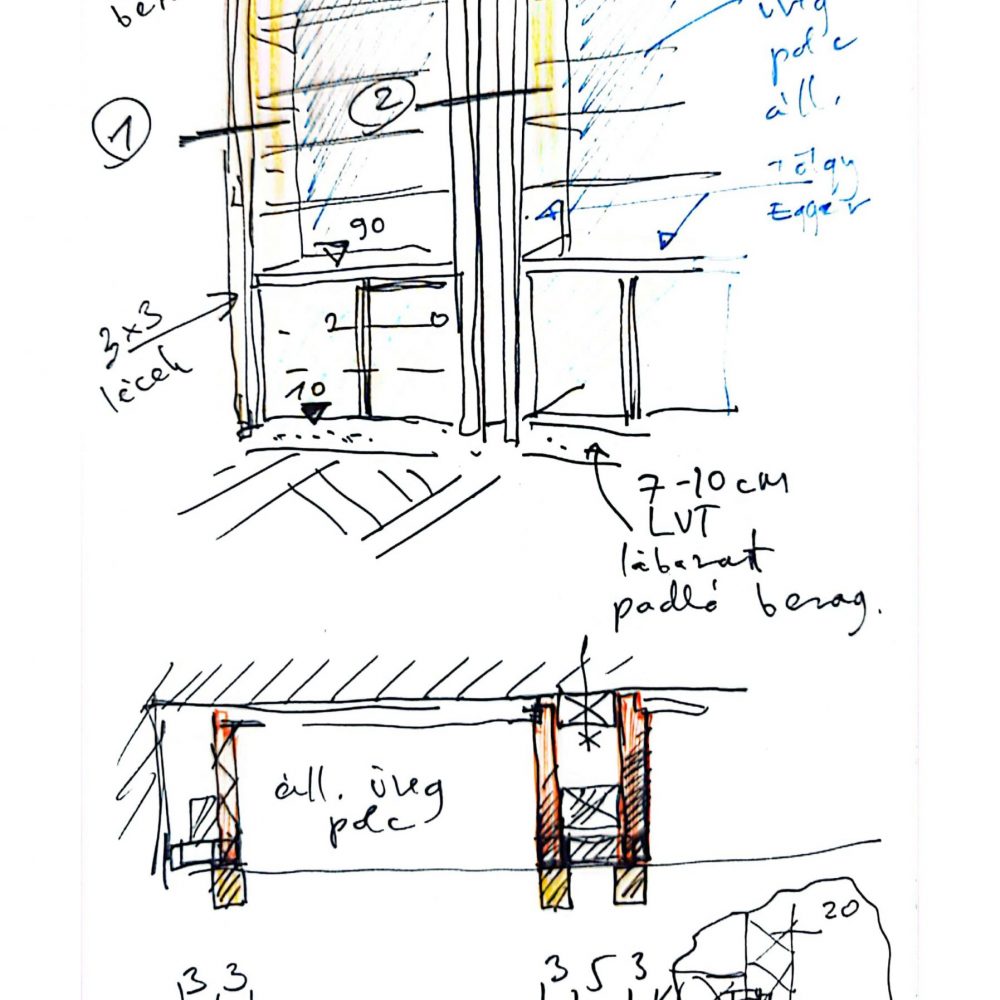 be
üveg
polc
áll.
1
2
tölgy
Egger
90
3x3
lécek
2 0
10
7-10 cm
LVT
lábazat
padló berag.
áll. üveg
polc
20
3 3
3 5 3